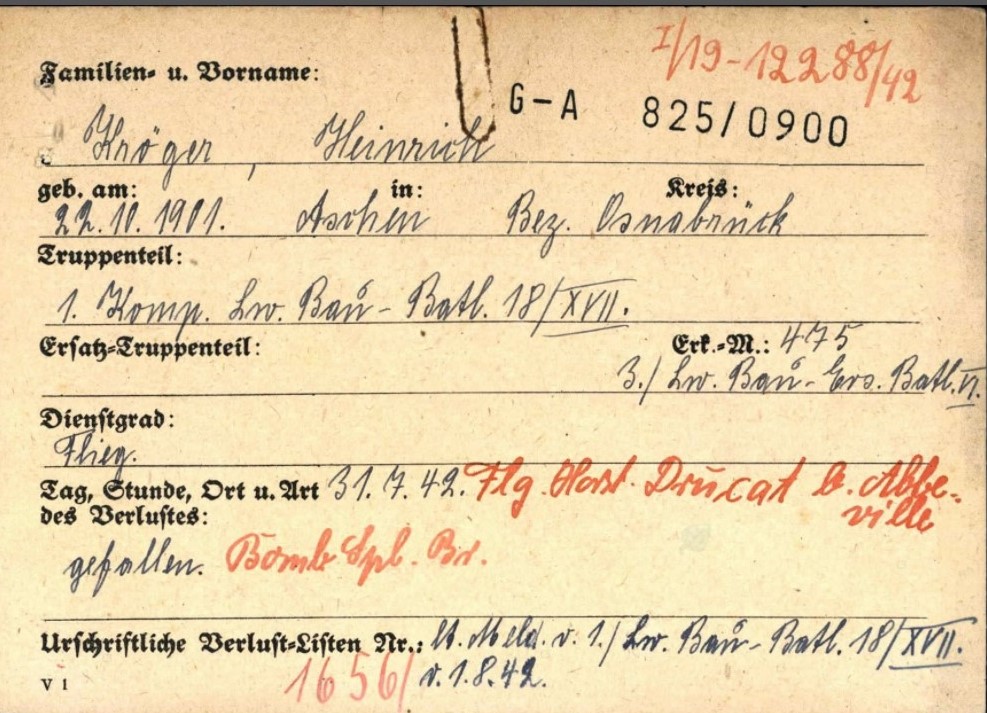 I/19-12288/42
Familien- u. Vorname:
G-A 825/0900
Kröger, Heinrich
geb. am: in: Kreis:
22.10.1901. Aschen Bez. Osnabrück
Truppenteil:
1. Komp. Lw. Bau-Batl. 18/XVII.
Ersatz-Truppenteil: Erk.-M.: 475
3./Lw. Bau-Ers. Batl. VI.
Dienstgrad:
Flieg.
Tag, Stunde, Ort u. Art 31.7.42. Flg. Horst. Drucat b. Abbe-
des Verlustes: ville
gefallen. Bomb Spl. Br.
Urschriftliche Verlust-Listen Nr.: lt. Meld. v. 1./Lw. Bau-Batl. 18/XVII.
1656/ v. 1.8.42.
V 1